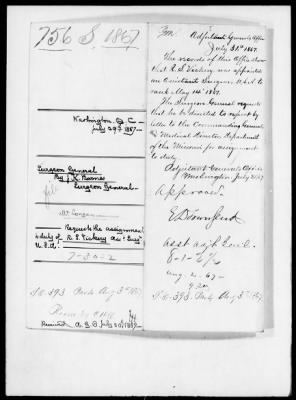 756 S. 1867
Washington, D.C.
July 29th 1867
Surgeon General
By J. K. Barnes
Surgeon General
file
Requests the assignment
to duty of R. S. Vickery Ass't Surg.
U.S.A.
7-30-2
S.O. 393. Par 6 Aug 3rd 1867.
Received A.G.O. July 30th 1867
Adjutant General's Office
July 31st 1867.
The records of this Office show
that R. S. Vickery was appointed
an Assistant Surgeon U.S.A. to
rank May 14th 1867.
The Surgeon General requests
that he be directed to report by
letter to the Commanding General
& Medical Director, Department
of the Missouri for assignment
to duty.
Adjutant General's Office
Washington July 31/67
Approved.
E. D. Townsend
Asst. Adjt. Genl.
8-1-67
Aug. 2-67
S.O. 393. Par 6 Aug 3rd 1867.